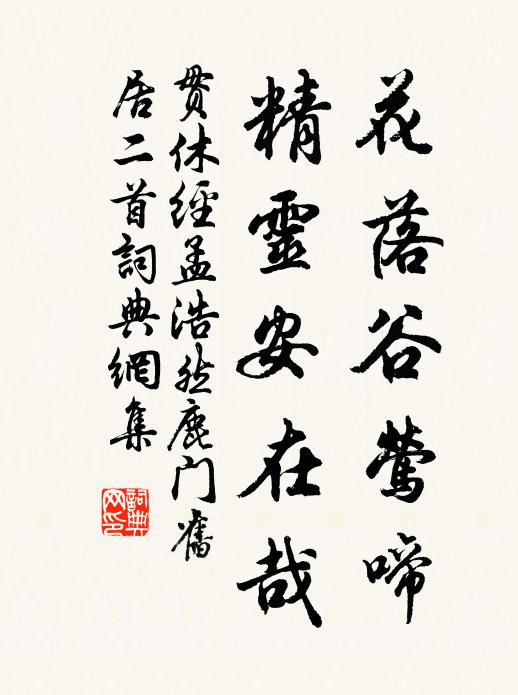 花落谷鶯啼
精靈安在哉
貫休經孟浩然鹿门舊
居二首詞典網集
詞典网印